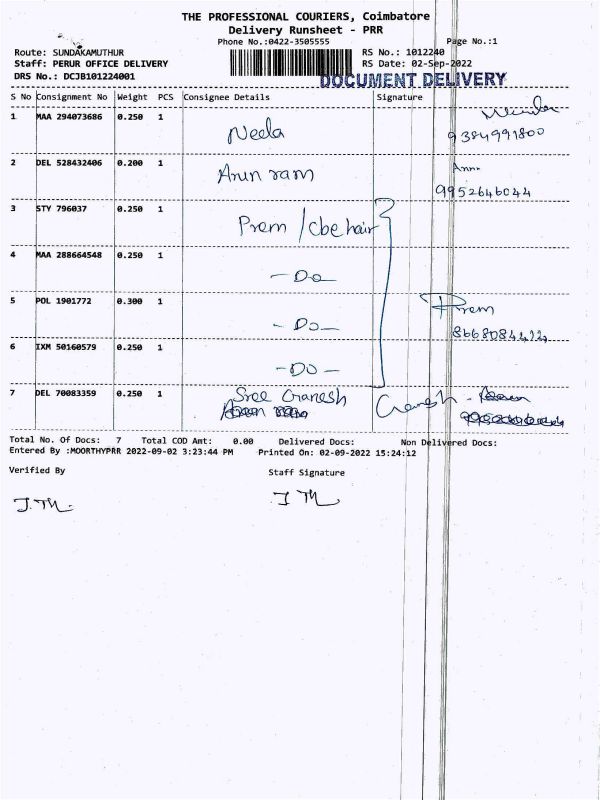 THE PROFESSIONAL COURIERS, Coimbatore
Delivery Runsheet - PRR
Phone No.:0422-3505555 Page No.:1
Route: SUNDAKAMUTHUR RS No.: 1012240
Staff: PERUR OFFICE DELIVERY RS Date: 02-Sep-2022
DRS No.: DCJB101224001 DOCUMENT DELIVERY
S No Consignment No Weight PCS Consignee Details Signature
1 MAA 294073686 0.250 1
Neela 9384991800
2 DEL 528432406 0.200 1
Arun ram 9952646044
3 STY 796037 0.250 1
Prem / cbe hair
4 MAA 288664548 0.250 1
- Do -
5 POL 1901772 0.300 1 Prem
- Do -
6 IXM 50160579 0.250 1
- DO -
7 DEL 70083359 0.250 1 Sree Ganesh Ganesh
Total No. Of Docs: 7 Total COD Amt: 0.00 Delivered Docs: Non Delivered Docs:
Entered By :MOORTHYPRR 2022-09-02 3:23:44 PM Printed On: 02-09-2022 15:24:12
Verified By Staff Signature